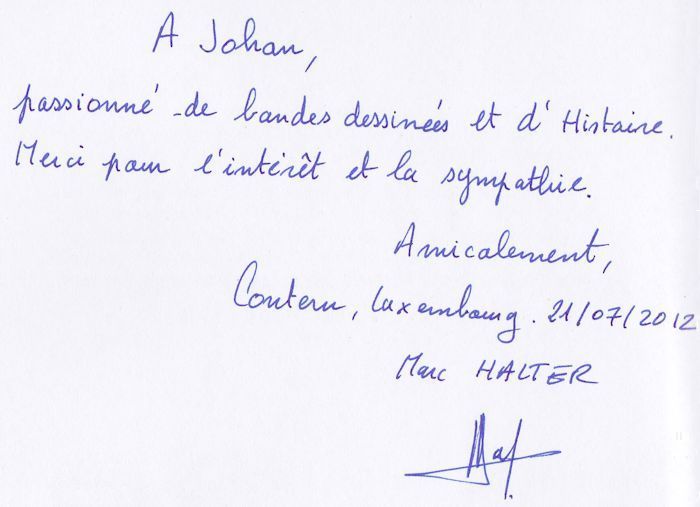 A Johan,
passionné de bandes dessinées et d'Histoire.
Merci pour l'intérêt et la sympathie.
Amicalement,
Contern, Luxembourg. 21/07/2012
Marc HALTER